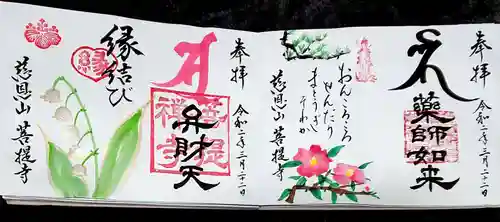 奉拝
薬師如来
令和二年三月二十二日
おんころころ
せんだり
まとうぎ
そわか
慈恩山 菩提寺
奉拝
弁財天
菩提禅寺
令和二年三月二十二日
縁結び
縁
慈恩山 菩提寺